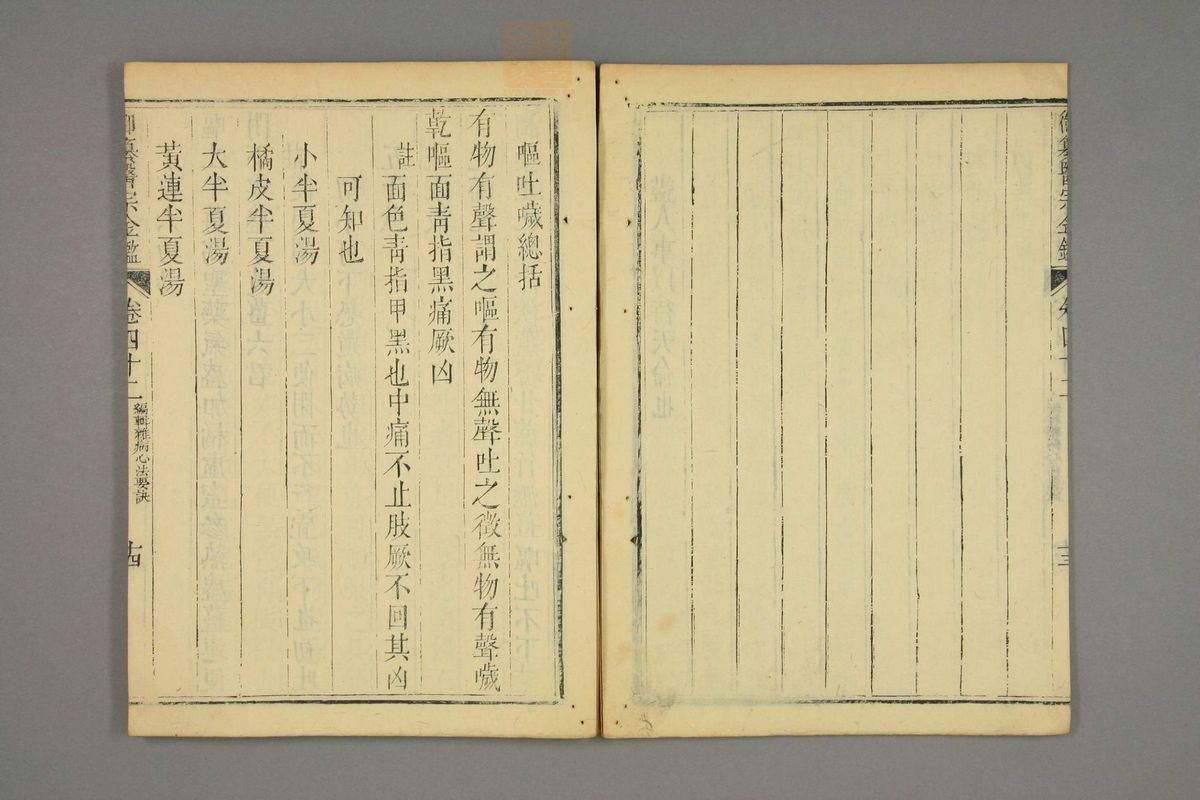 御纂醫宗金鑑
卷四十二
十三
嘔吐噦總括
有物有聲謂之嘔有物無聲吐之徵無物有聲噦
乾嘔面青指黑痛厥凶
註面色青指甲黑也中痛不止肢厥不回其凶
可知也
小半夏湯
橘皮半夏湯
大半夏湯
黃連半夏湯
御纂醫宗金鑑
卷四十二
編輯雜病心法要訣
十四